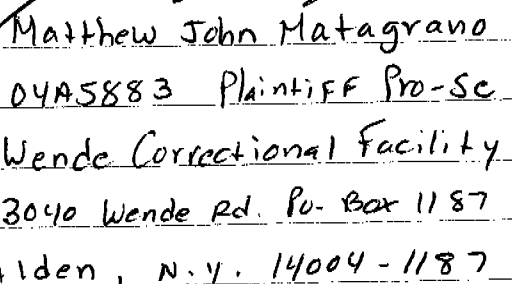 Matthew John Matagrano
04A5883 Plaintiff Pro-Se
Wende Correctional Facility
3040 Wende Rd. Po- Box 1187
Alden, N.Y. 14004-1187